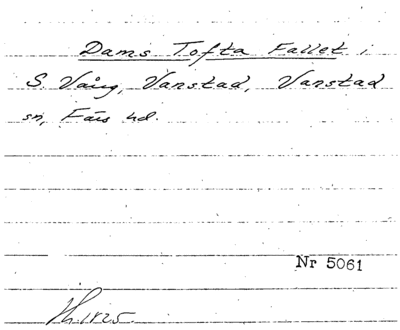 Dams Tofta Fallet i
S. Vång, Vanstad, Vanstad
sn, Färs hd.
Nr 5061